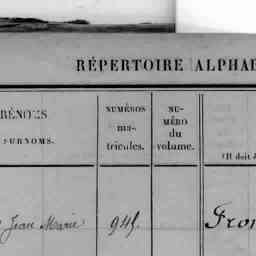 RÉPERTOIRE ALPHAB
RÉNOMS
SURNOMS.
NUMÉROS
ma-
tricules.
NU-
MÉRO
du
volume.
(Il doit
Jean Marie
Fron